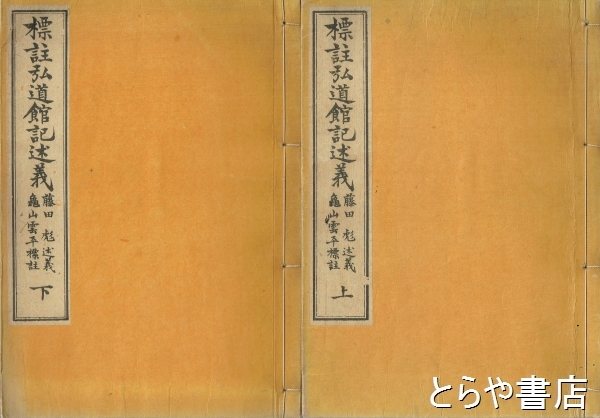 標註弘道館記述義
藤田彪述義
龜山雲平標註
上
標註弘道館記述義
藤田彪述義
龜山雲平標註
下
とらや書店